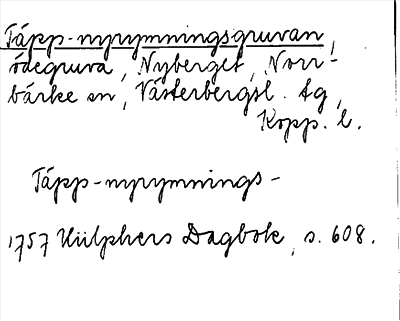 Täpp-nyrymningsgruvan,
ödegruva, Nyberget, Norr-
bärke sn, Västerbergsl. tg,
Kopp. l.
Täpp-nyrymnings-
1757 Hülphers Dagbok, s. 608.